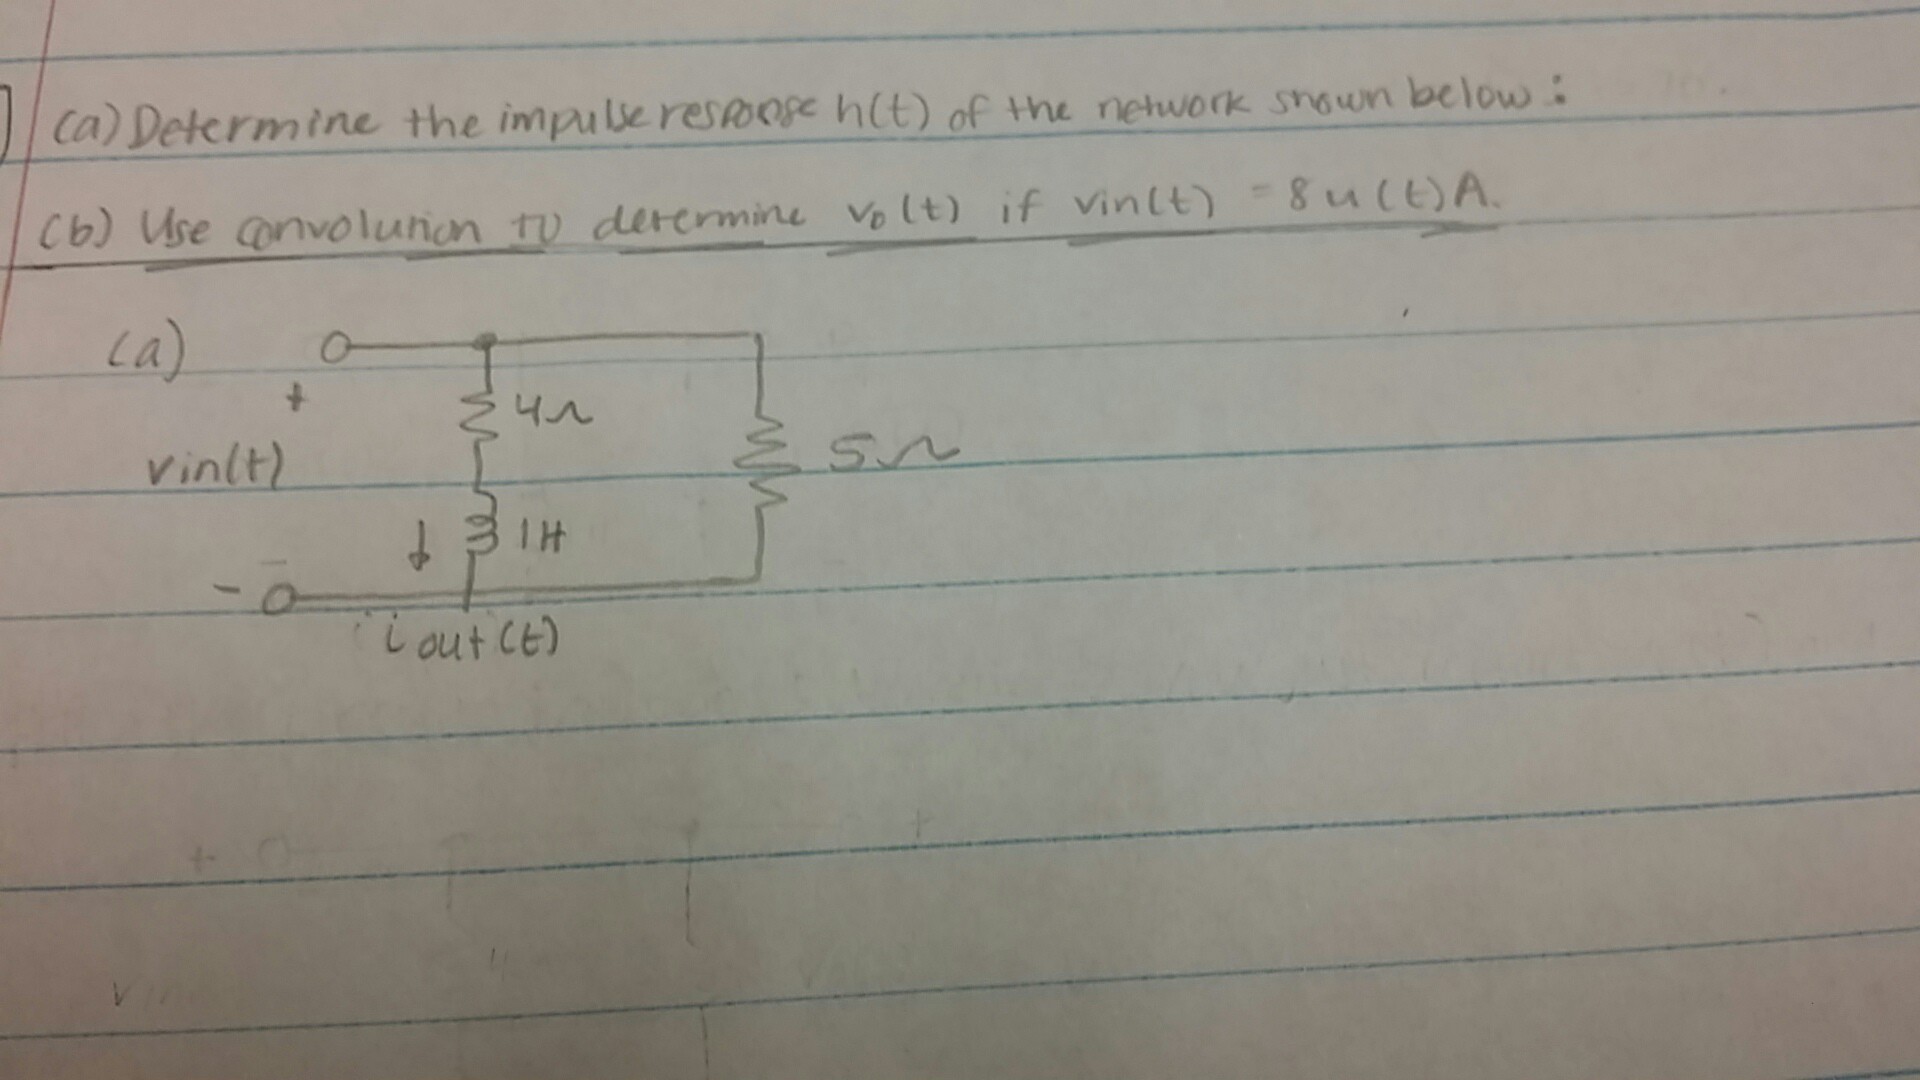 (a) Determine the impulse response h(t) of the network shown below:
(b) Use convolution to determine vo(t) if vin(t) = 8u(t)A.
(a)
+
4Ω
vin(t)
5Ω
1H
-
iout(t)